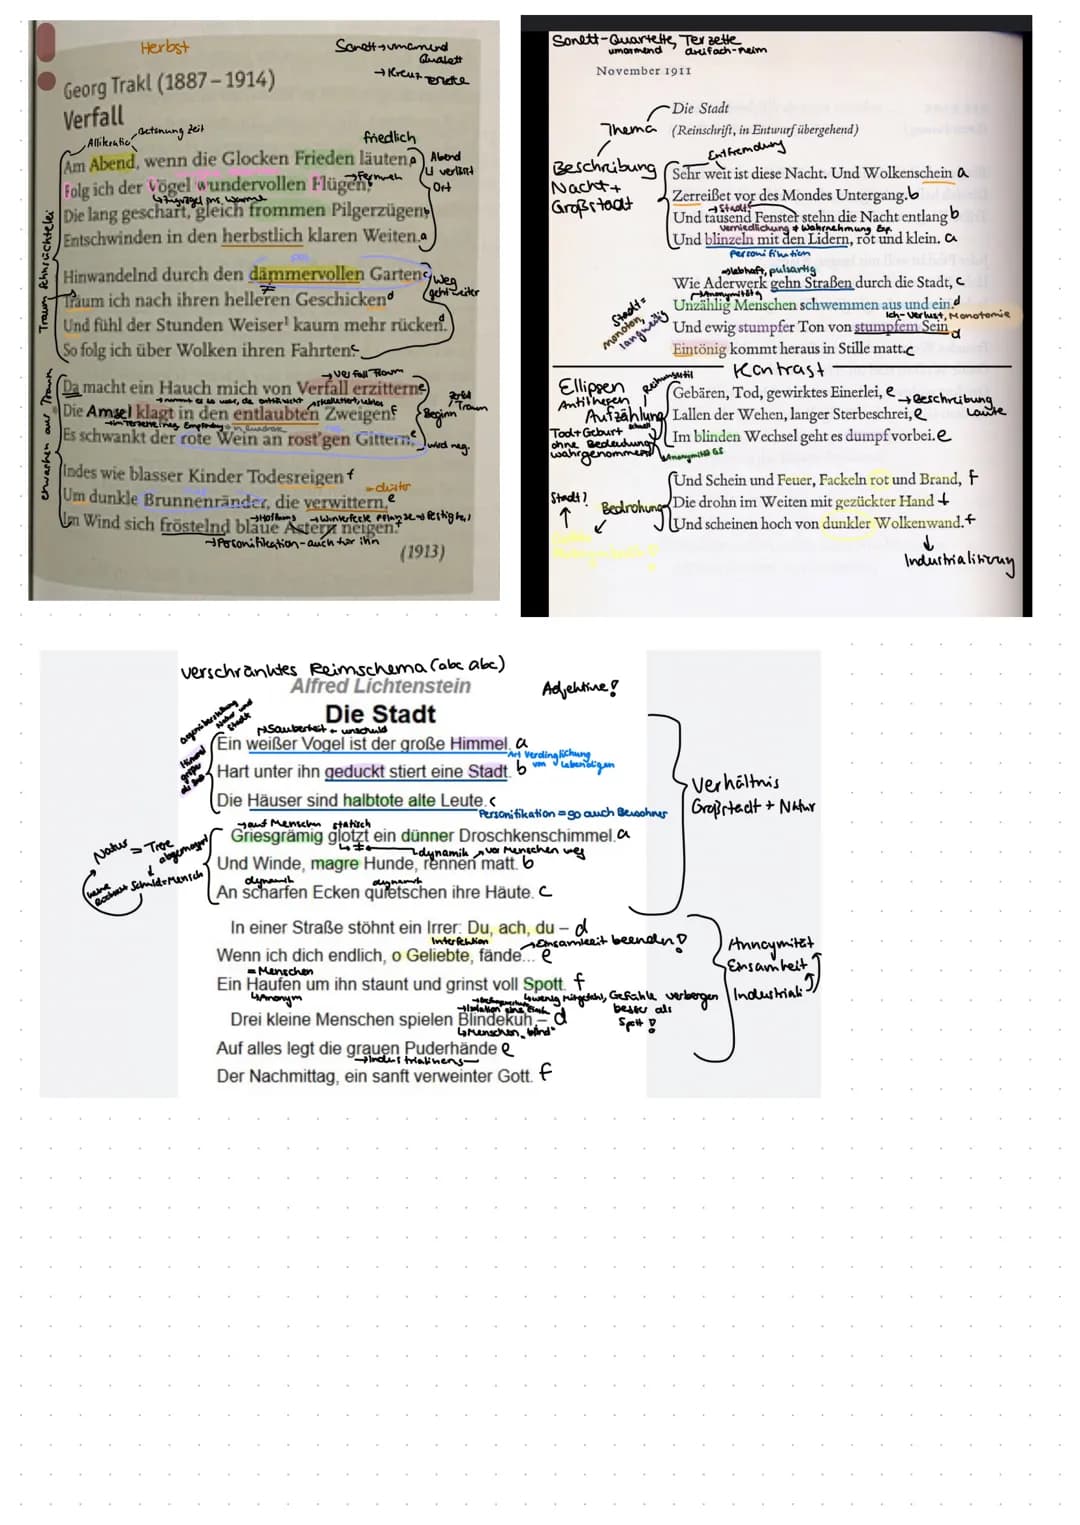 Herbst
Sonett → umarmend
Quartett
→ Kreuz Terzette
Georg Trakl (1887–1914)
Verfall
Alliteratio
Betonung Zeit
friedlich
Am Abend, wenn die Glocken Frieden läuten, a
Folg ich der Vögel wundervollen Flügen,
→ Fernweh
Die lang geschart, gleich frommen Pilgerzügen,
Entschwinden in den herbstlich klaren Weiten. a
Abend
LI verlässt
Ort
Hinwandelnd durch den dämmervollen Garten c
Träum ich nach ihren helleren Geschicken d
Und fühl der Stunden Weiser¹ kaum mehr rücken. d
So folg ich über Wolken ihren Fahrten. c
Weg
geht weiter
→ Verfall Traum
Da macht ein Hauch mich von Verfall erzittern. e
Die Amsel klagt in den entlaubten Zweigen. f
Es schwankt der rote Wein an rost'gen Gittern. e
Beginn
wird neg.
erwachen aus Traum
Indes wie blasser Kinder Todesreigen f
→ düster
Um dunkle Brunnenränder, die verwittern, e
Im Wind sich fröstelnd blaue Astern neigen. f
→ Personifikation - auch für ihn
(1913)
Sonett - Quartette, Terzette
umarmend dreifach-reim
November 1911
Die Stadt
Thema
(Reinschrift, in Entwurf übergehend)
Entfremdung
Beschreibung
Nacht +
Großstadt
Sehr weit ist diese Nacht. Und Wolkenschein a
Zerreißet vor des Mondes Untergang. b
→ Stadt
Und tausend Fenster stehn die Nacht entlang b
Verniedlichung + Wahrnehmung Exp.
Und blinzeln mit den Lidern, rot und klein. a
Personifikation
→ lebhaft, pulsartig
Wie Aderwerk gehn Straßen durch die Stadt, c
→ Anonymität
Unzählig Menschen schwemmen aus und ein. d
Ich-Verlust, Monotomie
Und ewig stumpfer Ton von stumpfem Sein d
Eintönig kommt heraus in Stille matt. c
Stadt =
monoton,
langweilig
Kontrast
Ellipsen
Antithesen
Aufzählung
Gebären, Tod, gewirktes Einerlei, e → Beschreibung
Laute
Lallen der Wehen, langer Sterbeschrei, e
Im blinden Wechsel geht es dumpf vorbei. e
Tod + Geburt
ohne Bedeutung
wahrgenommen
Und Schein und Feuer, Fackeln rot und Brand, f
Die drohn im Weiten mit gezückter Hand f
Und scheinen hoch von dunkler Wolkenwand. f
Stadt?
Bedrohung
Industrialisierung
verschränktes Reimschema (abc abc)
Alfred Lichtenstein
Adjektive!
Die Stadt
→ Sauberkeit + unschuld
Ein weißer Vogel ist der große Himmel. a
Art Verdinglichung
von Lebendigen
Hart unter ihn geduckt stiert eine Stadt. b
Die Häuser sind halbtote alte Leute. c
Personifikation = so auch Bewohner
Verhältnis
Großstadt + Natur
→ auf Menschen statisch
Griesgrämig glotzt ein dünner Droschkenschimmel. a
→ dynamik → vor Menschen weg
Und Winde, magre Hunde, rennen matt. b
dynamik dynamik
An scharfen Ecken quietschen ihre Häute. c
Natur = Tiere
abgemagert
Schuld = Mensch
In einer Straße stöhnt ein Irrer: Du, ach, du – d
Interjektion
→ Einsamkeit beenden!
Wenn ich dich endlich, o Geliebte, fände... e
= Menschen
Ein Haufen um ihn staunt und grinst voll Spott. f
↳ Anonym
↳ wenig Mitgefühl, Gefühle verbergen
besser als
Spott!
Drei kleine Menschen spielen Blindekuh – d
↳ Menschen "blind"
Auf alles legt die grauen Puderhände e
Der Nachmittag, ein sanft verweinter Gott. f
Annoymität
Einsamkeit
Industriali